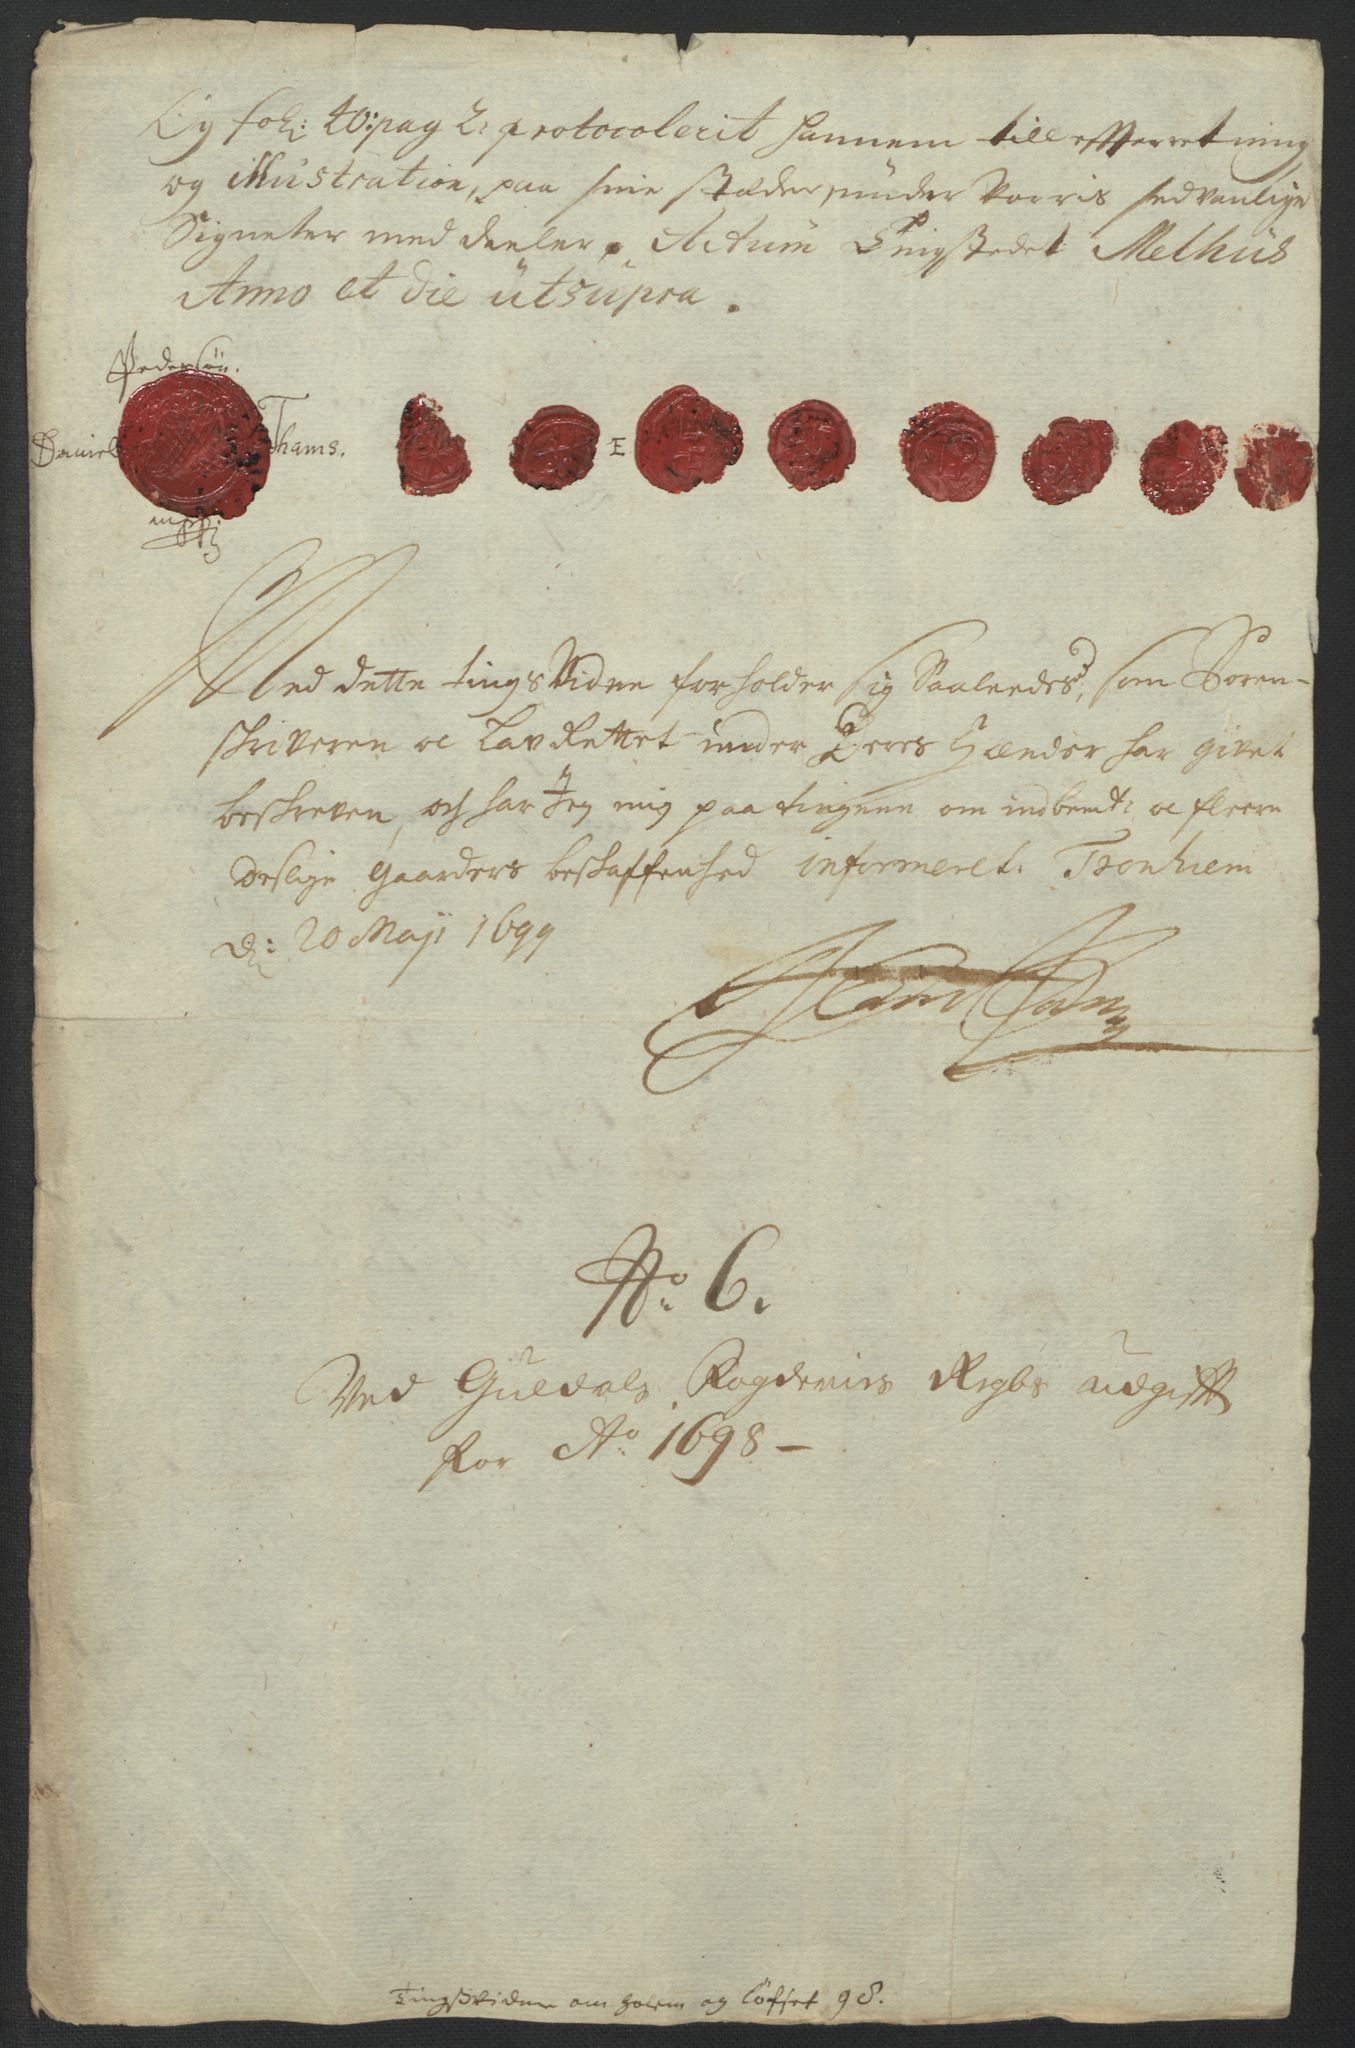 og fol: 40: pag 2: protocolerit hannem till effterretning
og illustration, paa sine stæder, under Vorris sedvanlige
Signeter med deeler. Actum Tingstedet Melhus
Anno et die ut supra.
Pedersøn.
Daniel Thams.
E
mpp
Med dette tings Vidne forholder sig Saaleedes, som Soren-
skriveren oc LavRettet under Deres Hænder har givet
beskreven, och har Jeg mig paa tingene om indbemt: oc fleere
deslige gaarders beskaffenhed informeret. Tronhiem
d: 20 Maji 1699
No. 6.
Ved Guldals Fogderies Regbs udgifft
for Ao. 1698 -
Tingsvidne om Holem og Löfset 98.